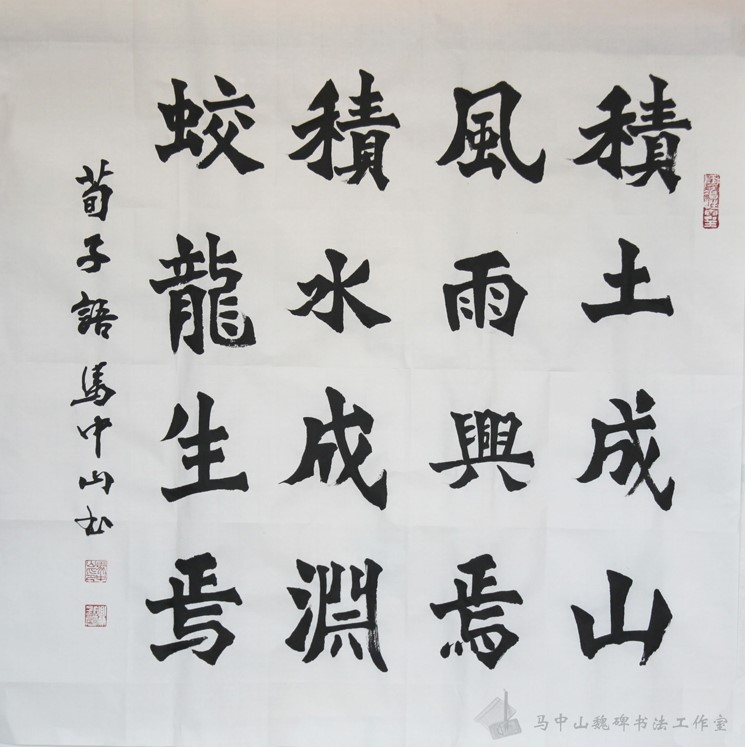 積土成山
風雨興焉
積水成淵
蛟龍生焉
荀子語馬中山书
马中山魏碑书法工作室